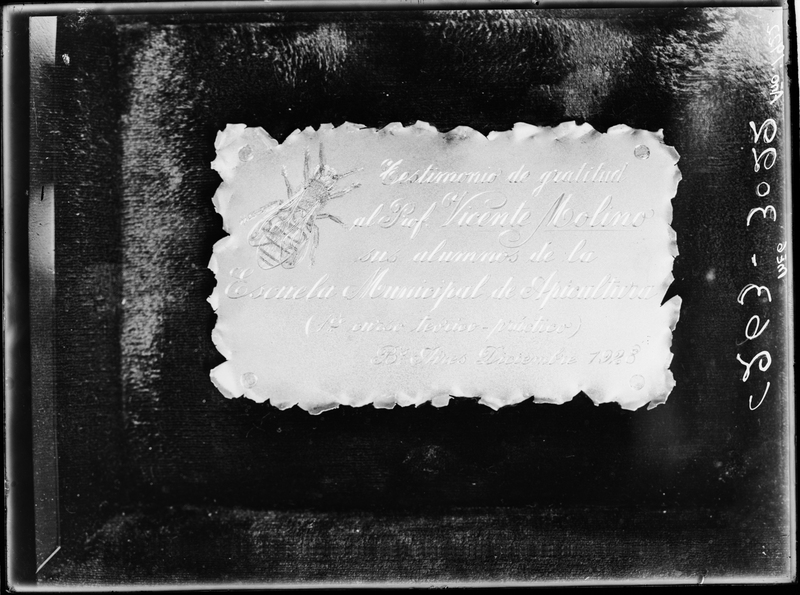 Testimonio de gratitud
al Prof. Vicente Molino
sus alumnos de la
Escuela Municipal de Apicultura
(1er curso teórico-práctico)
Bs Aires Diciembre 1923
C263-3022
NEG
Año 192